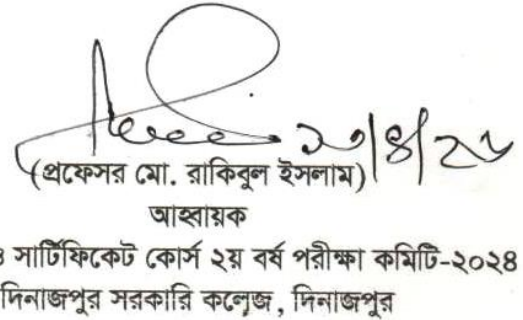 (প্রফেসর মো. রাকিবুল ইসলাম)
আহ্বায়ক
সার্টিফিকেট কোর্স ২য় বর্ষ পরীক্ষা কমিটি-২০২৪
দিনাজপুর সরকারি কলেজ, দিনাজপুর